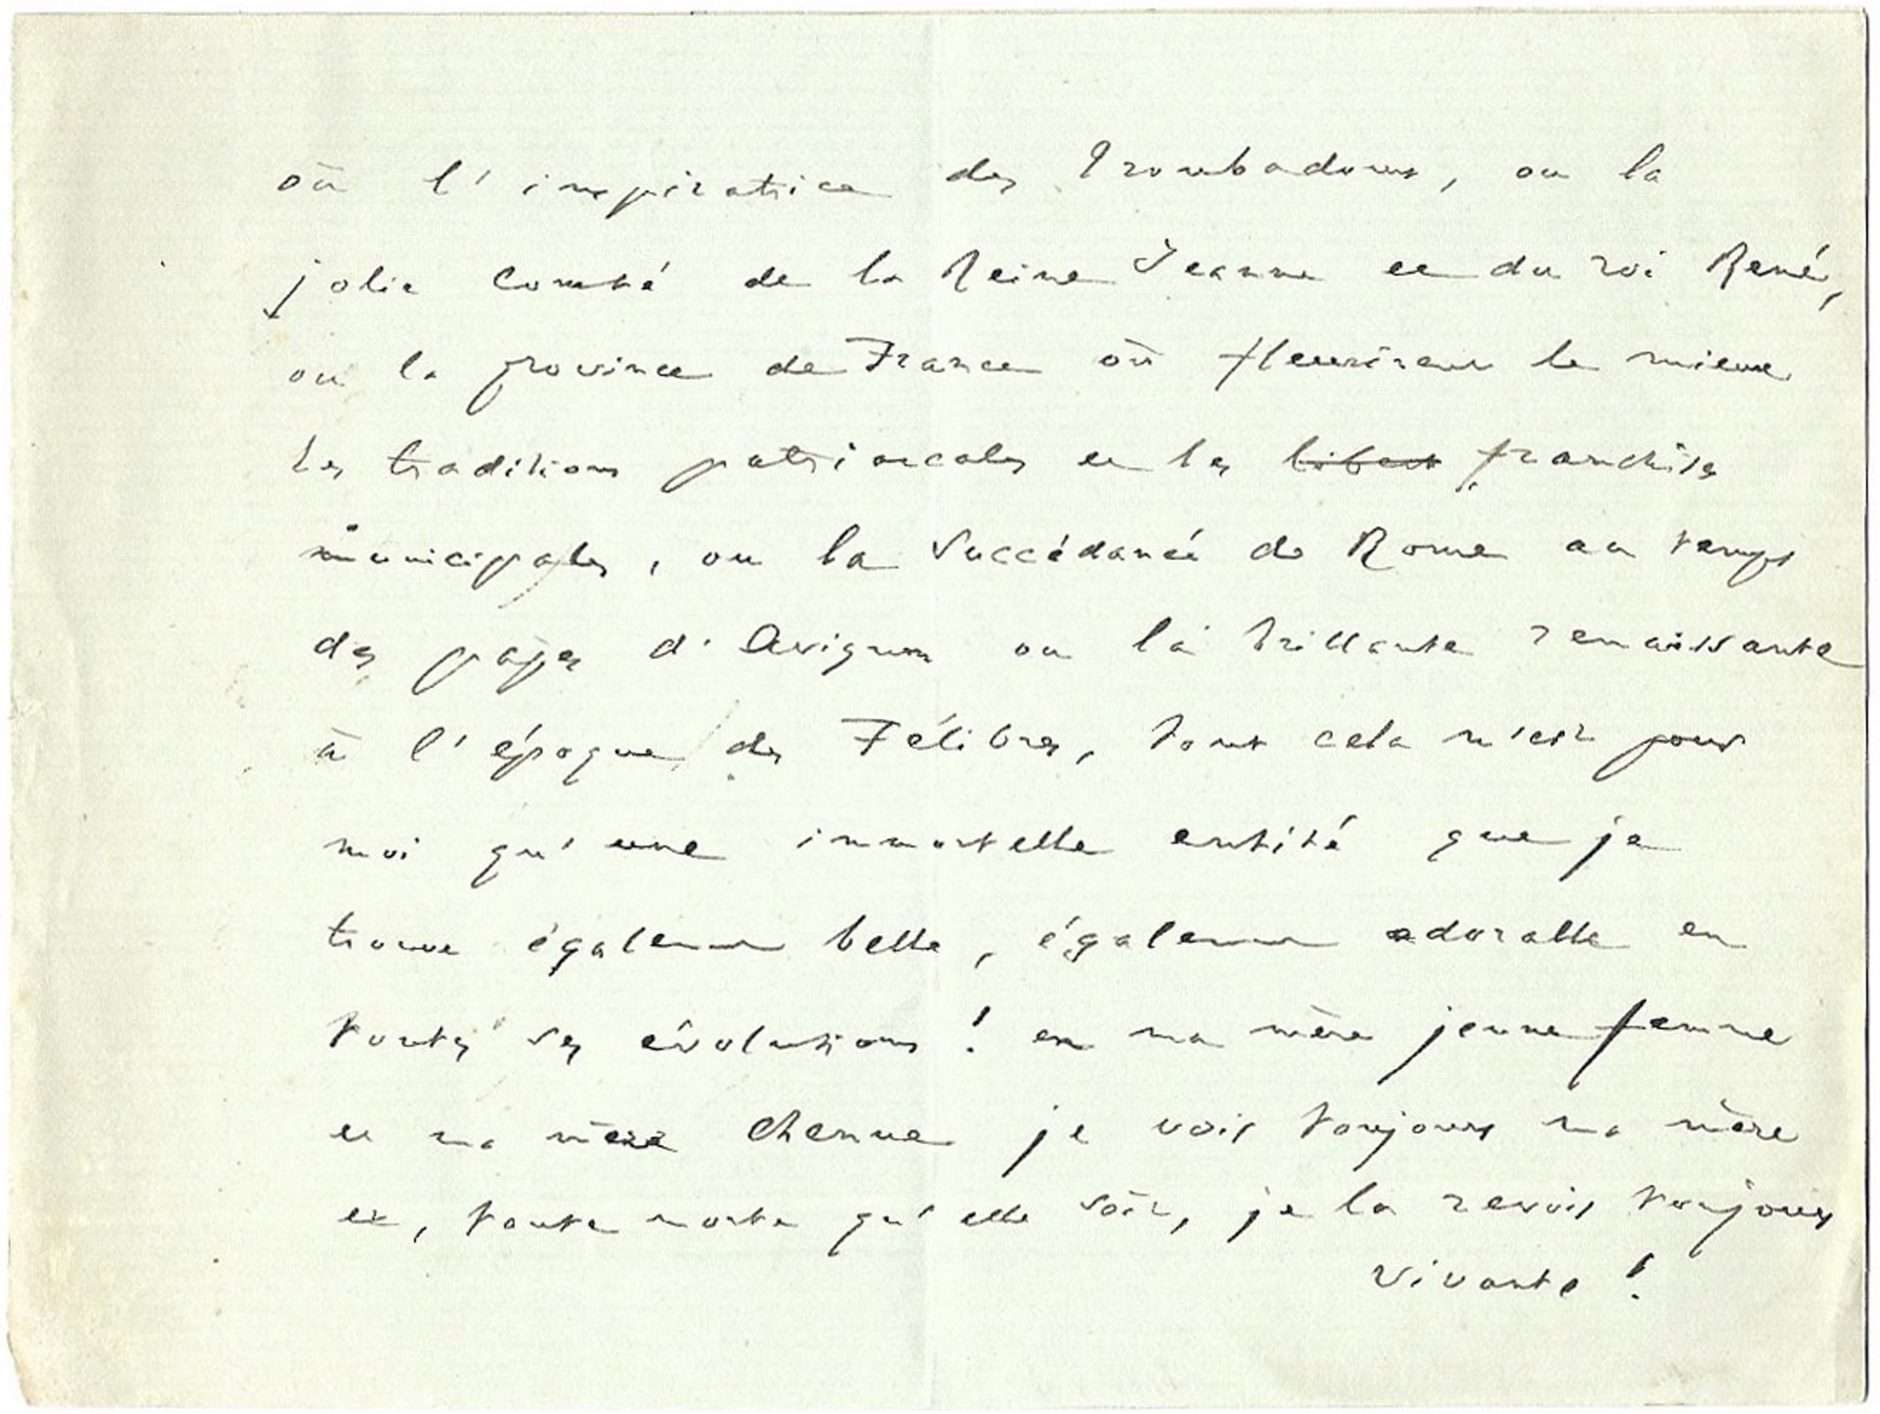 où l'inspiratrice des Troubadours, ou la
jolie Comté de la Reine Jeanne et du roi René,
ou la province de France où fleurirent le mieux
les traditions patriarcales et les libert franchises
municipales, ou la succédanée de Rome au temps
des papes d'Avignon ou la brillante renaissante
à l'époque des Félibres, tout cela n'est pour
moi qu'une immortelle entité que je
trouve également belle, également adorable en
toutes ses évolutions ! en ma mère jeune femme
et ma mère chenue je vois toujours ma mère
et, toute morte qu'elle soit, je la revois toujours
vivante !